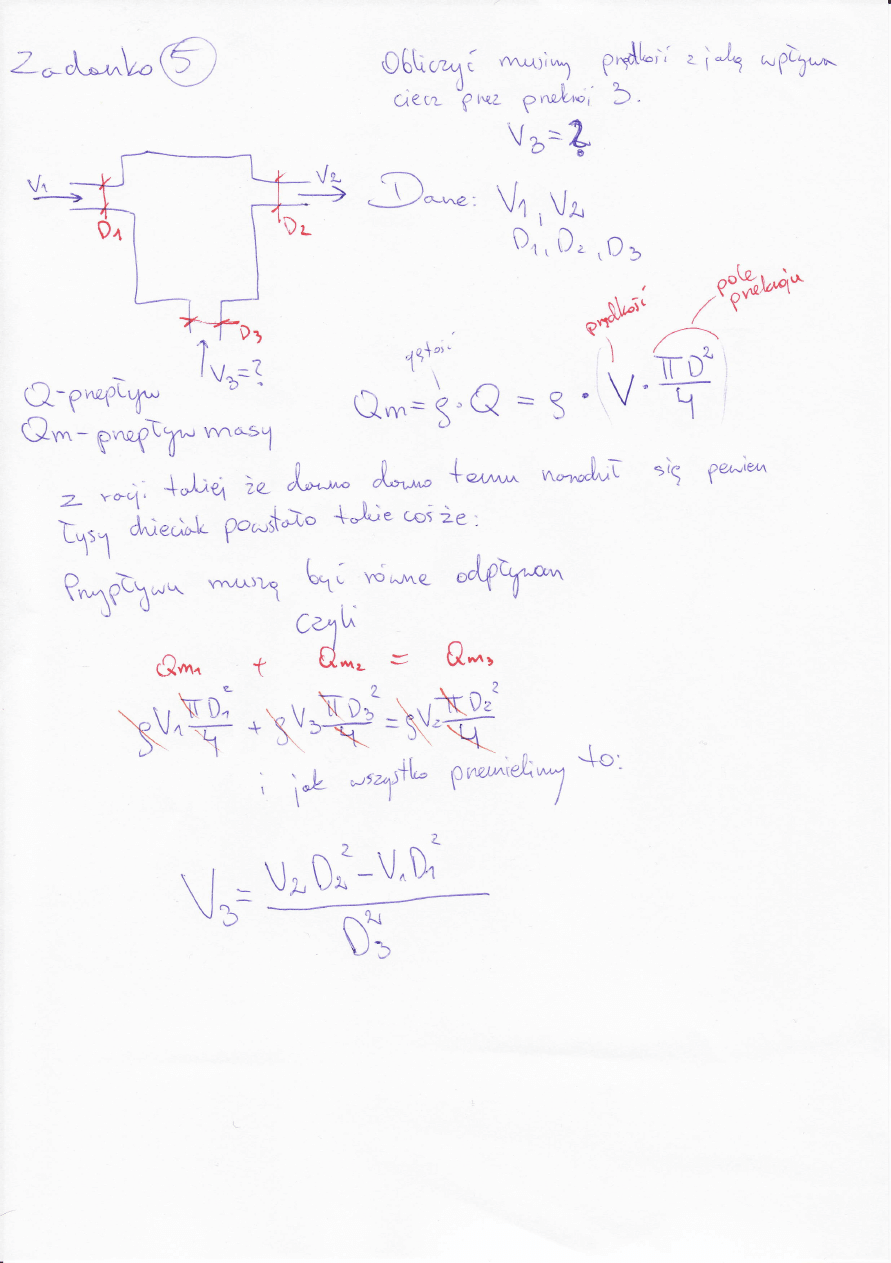 Zadanko 5
Obliczyć musimy prędkość z jaką wpływa
ciecz przez przekrój 3.
V3 = ?
V1
V2
D1
D2
D3
V3 = ?
Dane: V1, V2
D1, D2, D3
Q - przepływ
Qm - przepływ masy
gęstość
prędkość
pole
przekroju
Qm = ρ · Q = ρ · (V · πD²/4)
z racji takiej że dawno dawno temu narodził się pewien
łysy dzieciak powstało takie coś że:
Przypływu muszą być równe odpływan
czyli
Qm1 + Qm2 = Qm3
ρV1 πD1²/4 + ρV3 πD3²/4 = ρV2 πD2²/4
i jak wszystko przemielimy to:
V3 = (V2D2² - V1D1²)/D3²